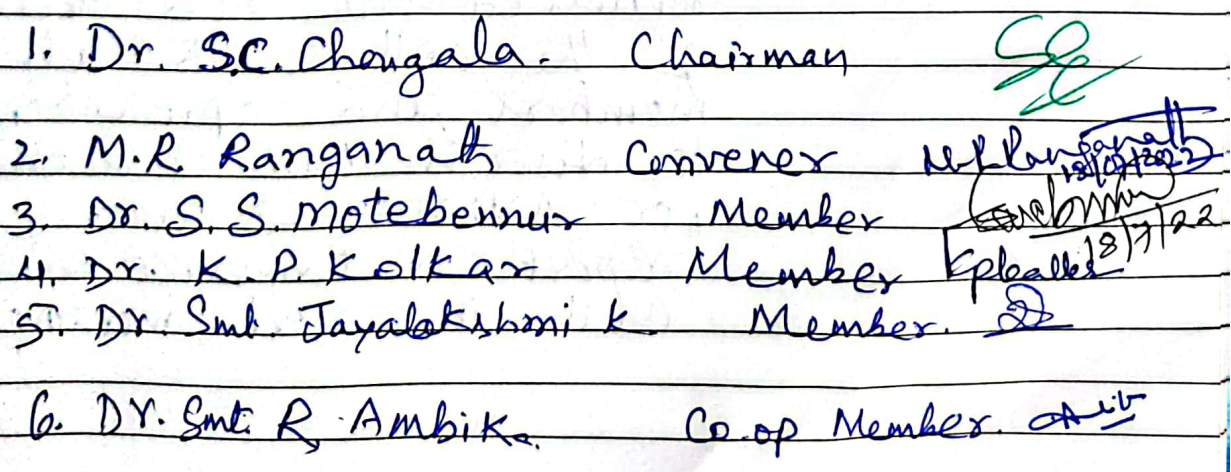 1. Dr. S.C. Chougala. Chairman
2. M.R. Ranganath Convener M R Ranganath 18/07/2022
3. Dr. S. S. Motebennur Member 18/7/22
4. Dr. K. P. Kolkar Member
5. Dr. Smt. Jayalakshmi k. Member.
6. DR. Smt. R. Ambika. Co.op Member.